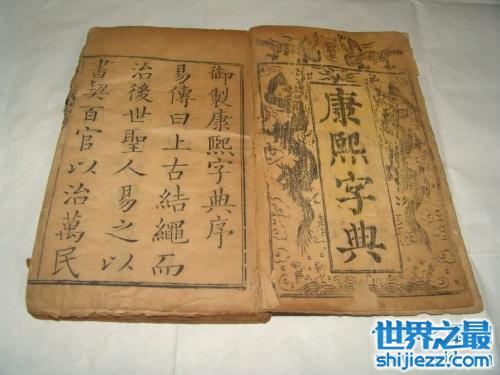 康熙字典
御製康熙字典序
易傳曰上古結繩而
治後世聖人易之以
書契百官以治萬民
世界之最
shijiezz.com